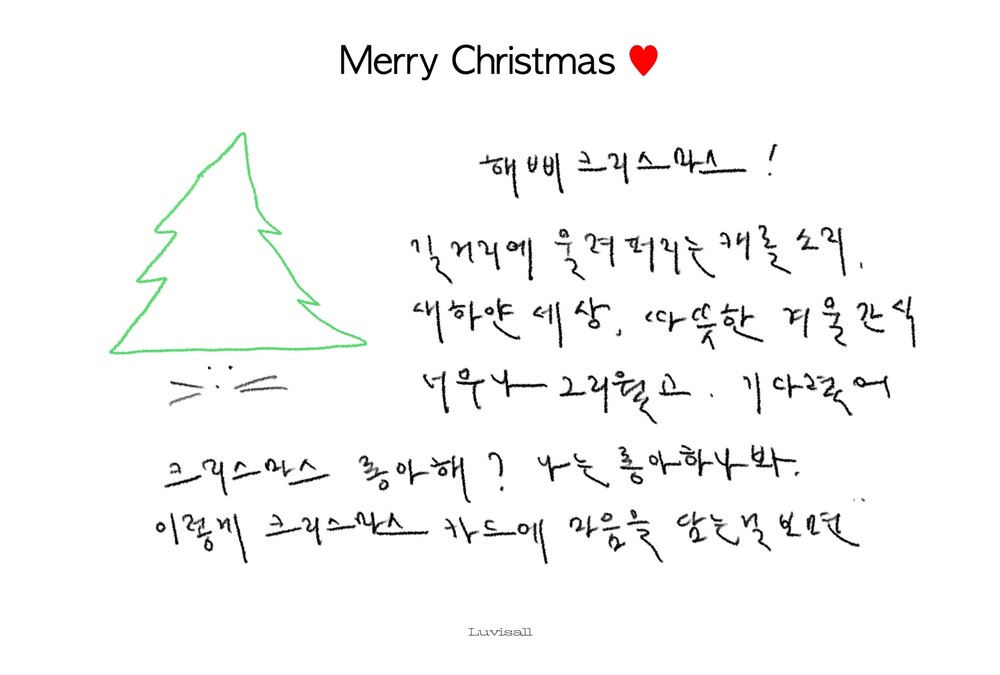 Merry Christmas ♥
해삐 크리스마스 !
길거리에 울려퍼지는 캐롤 소리,
새하얀 세상, 따뜻한 겨울간식
너무나 그리웠고. 기다렸어
크리스마스 좋아해? 나는 좋아하나봐.
이렇게 크리스마스 카드에 마음을 담는걸 보면¨
Luvisall